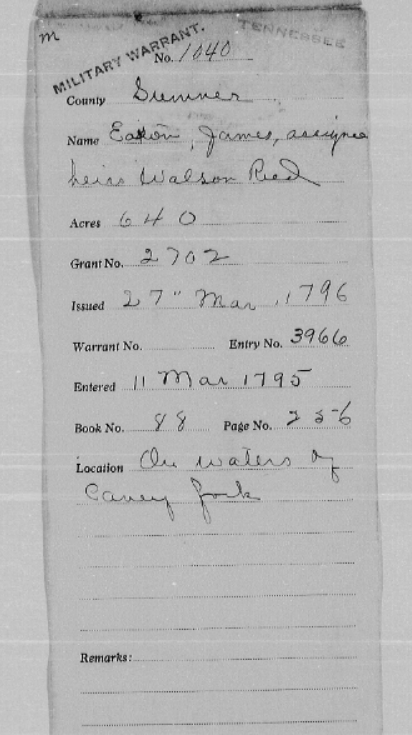 M
MILITARY WARRANT. TENNESSEE
No. 1040
County Sumner
Name Eaton, James, assignee
heirs Watson Reed
Acres 640
Grant No. 2702
Issued 27" Mar, 1796
Warrant No. Entry No. 3966
Entered 11 Mar 1795
Book No. 88 Page No. 256
Location On waters of
Caney fork
Remarks: